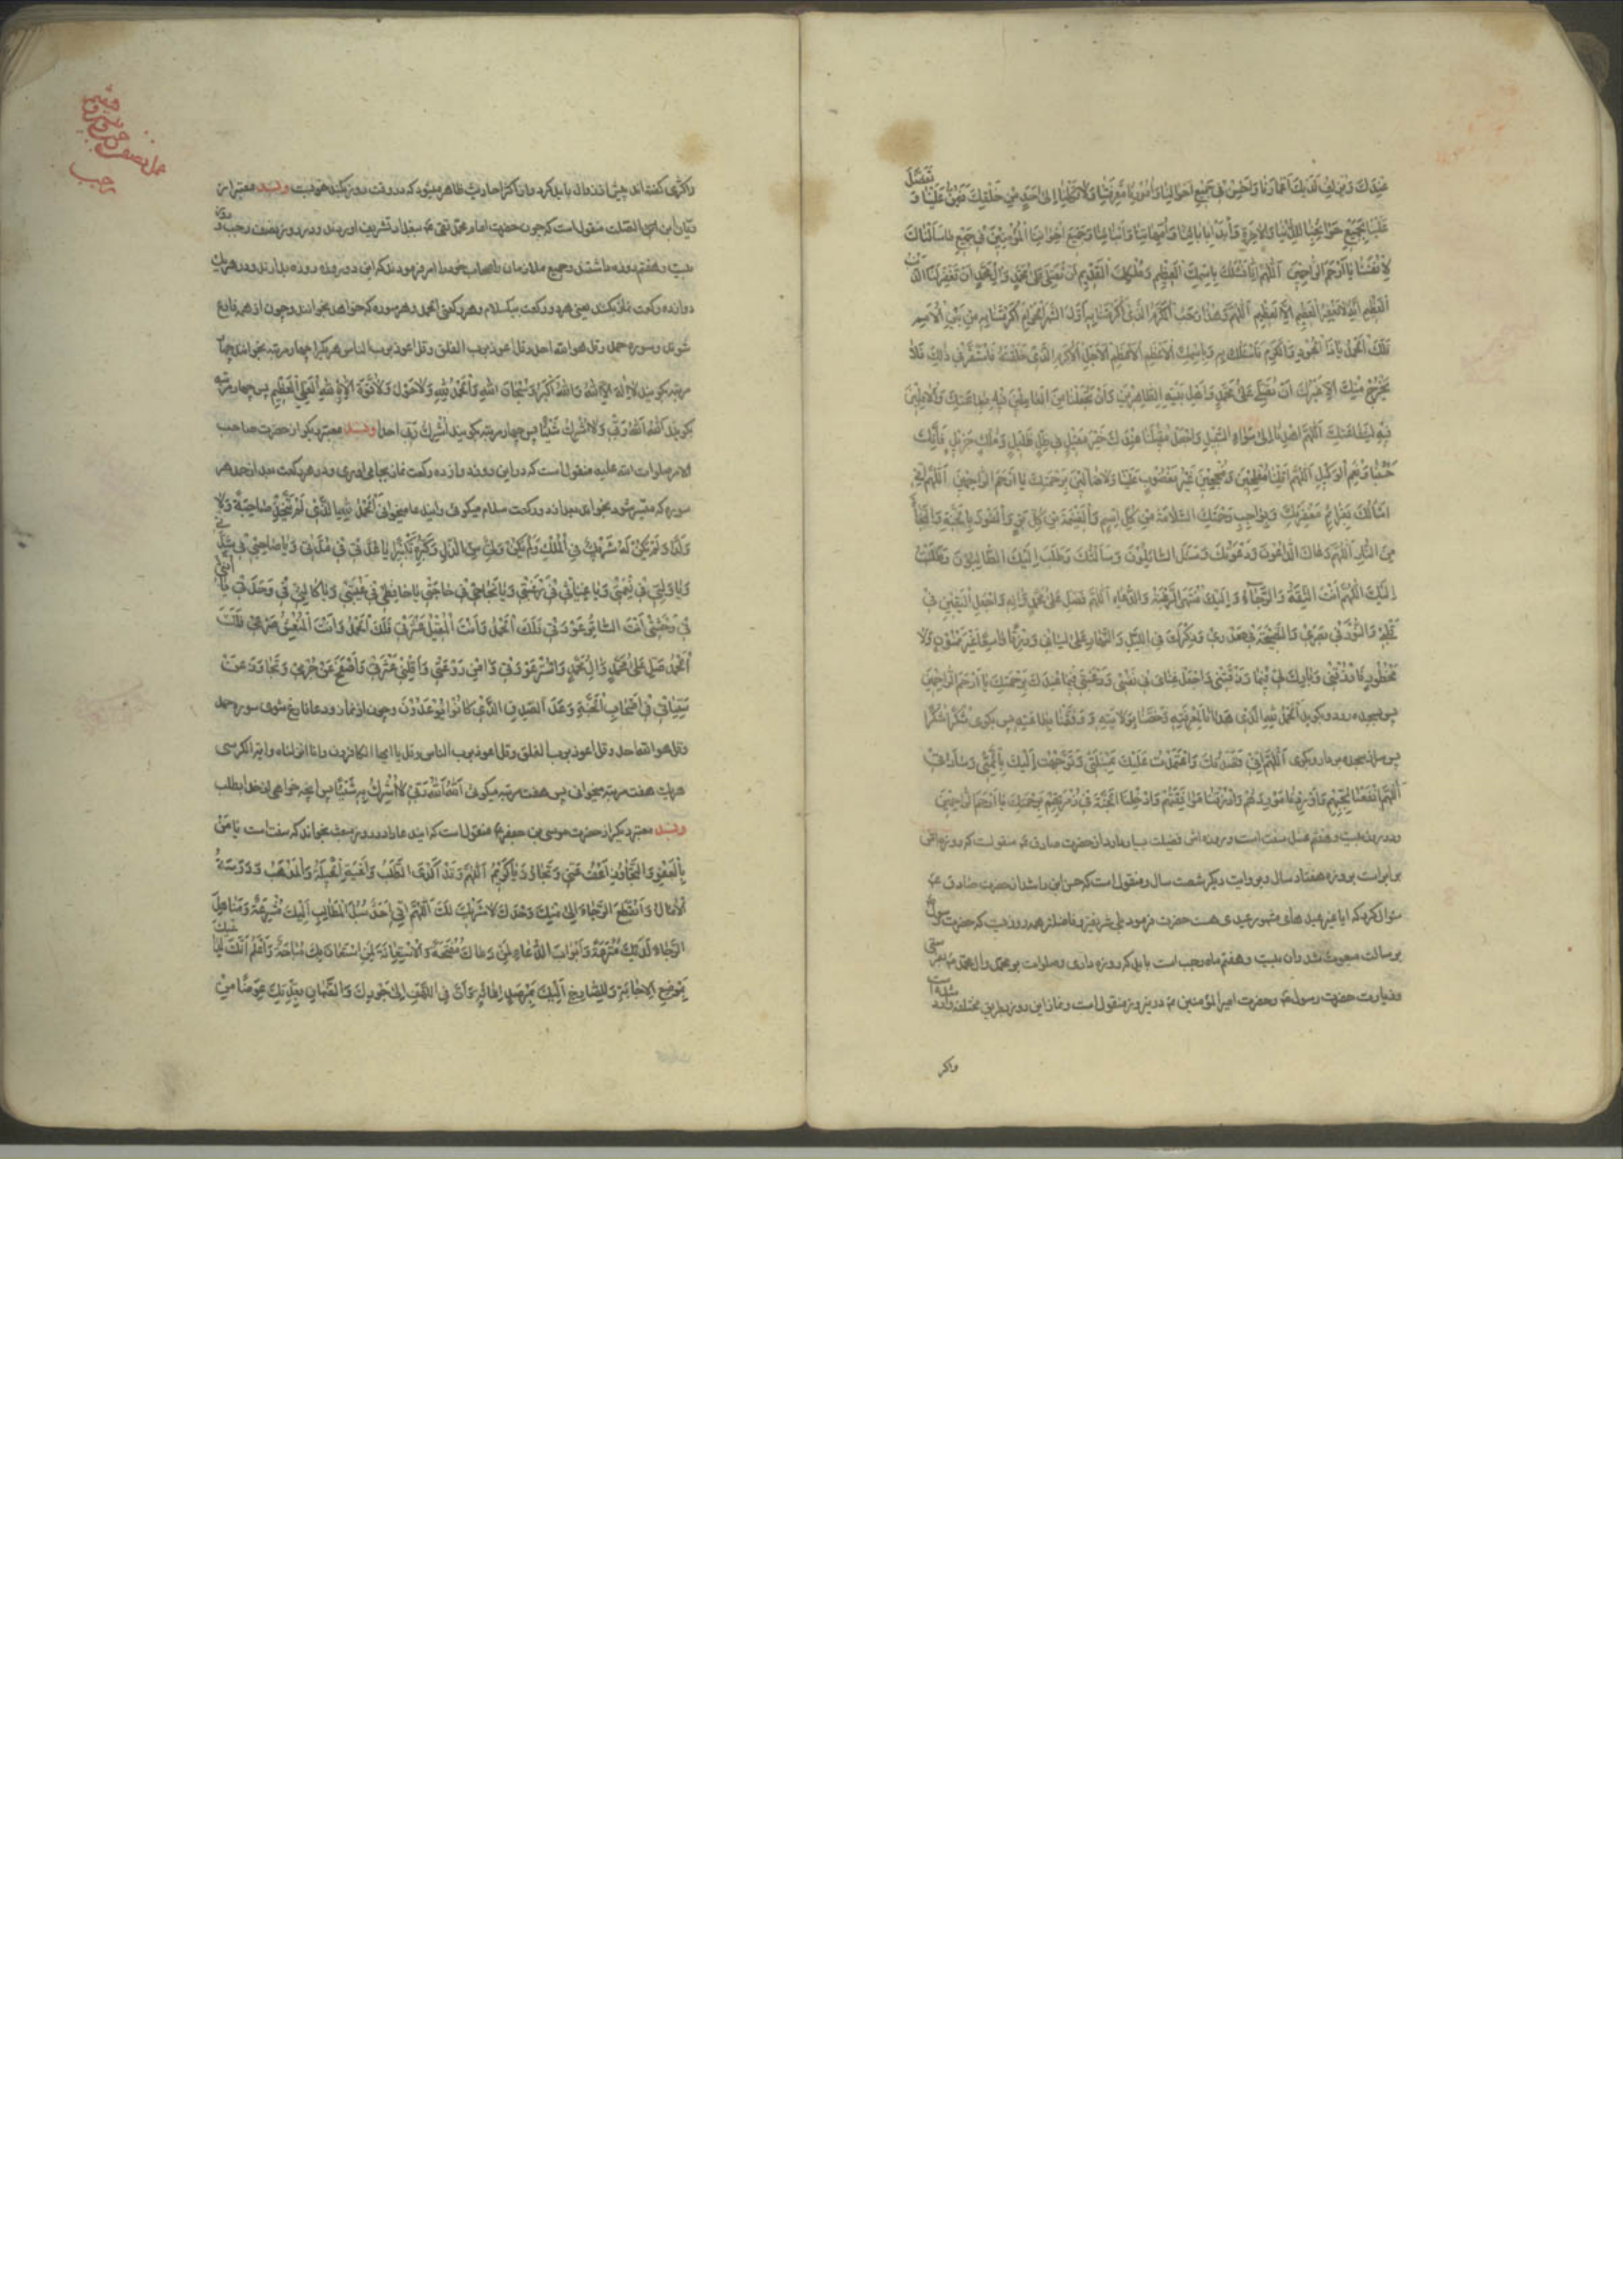 عِنْدَكَ وَبَارِكْ لَنَا فِي أَعْمَارِنَا وَأَحْسِنْ فِي جَمِيعِ أَحْوَالِنَا وَأُمُورِنَا مَعْرِفَتَنَا وَلَا تَكِلْنَا إِلَى أَحَدٍ مِنْ خَلْقِكَ فَيَمُنَّ عَلَيْنَا وَتَفَضَّلْ
عَلَيْنَا بِجَمِيعِ حَوَائِجِنَا لِلدُّنْيَا وَالْآخِرَةِ وَابْدَأْ بِآبَائِنَا وَأُمَّهَاتِنَا وَأَبْنَائِنَا وَجَمِيعِ إِخْوَانِنَا الْمُؤْمِنِينَ فِي جَمِيعِ مَا سَأَلْنَاكَ
لِأَنْفُسِنَا يَا أَرْحَمَ الرَّاحِمِينَ اَللّٰهُمَّ إِنَّا نَسْأَلُكَ بِاسْمِكَ الْعَظِيمِ وَمُلْكِكَ الْقَدِيمِ أَنْ تُصَلِّيَ عَلَى مُحَمَّدٍ وَآلِ مُحَمَّدٍ وَأَنْ تَغْفِرَ لَنَا الذَّنْبَ
الْعَظِيمَ إِنَّهُ لَا يَغْفِرُ الْعَظِيمَ إِلَّا الْعَظِيمُ اَللّٰهُمَّ وَهٰذَا رَجَبٌ الْمُكَرَّمُ الَّذِي أَكْرَمْتَنَا بِهِ أَوَّلُ أَشْهُرِ الْحُرُمِ أَكْرَمْتَنَا بِهِ مِنْ بَيْنِ الْأُمَمِ
فَلَكَ الْحَمْدُ يَا ذَا الْجُودِ وَالْكَرَمِ فَأَسْأَلُكَ بِهِ وَبِاسْمِكَ الْأَعْظَمِ الْأَعْظَمِ الْأَعْظَمِ الْأَجَلِّ الْأَكْرَمِ الَّذِي خَلَقْتَهُ فَاسْتَقَرَّ فِي ظِلِّكَ فَلَا
يَخْرُجُ مِنْكَ إِلَى غَيْرِكَ أَنْ تُصَلِّيَ عَلَى مُحَمَّدٍ وَأَهْلِ بَيْتِهِ الطَّاهِرِينَ وَأَنْ تَجْعَلَنَا مِنَ الْعَامِلِينَ فِيهِ بِطَاعَتِكَ وَالْآمِلِينَ
فِيهِ لِشَفَاعَتِكَ اَللّٰهُمَّ اهْدِنَا إِلَى سَوَاءِ السَّبِيلِ وَاجْعَلْ مَقِيلَنَا عِنْدَكَ خَيْرَ مَقِيلٍ فِي ظِلٍّ ظَلِيلٍ وَمُلْكٍ جَزِيلٍ فَإِنَّكَ
حَسْبُنَا وَنِعْمَ الْوَكِيلُ اَللّٰهُمَّ اقْلِبْنَا مُفْلِحِينَ مُنْجِحِينَ غَيْرَ مَغْضُوبٍ عَلَيْنَا وَلَا ضَالِّينَ بِرَحْمَتِكَ يَا أَرْحَمَ الرَّاحِمِينَ اَللّٰهُمَّ إِنِّي
أَسْأَلُكَ بِعَزَائِمِ مَغْفِرَتِكَ وَبِوَاجِبِ رَحْمَتِكَ السَّلَامَةَ مِنْ كُلِّ إِثْمٍ وَالْغَنِيمَةَ مِنْ كُلِّ بِرٍّ وَالْفَوْزَ بِالْجَنَّةِ وَالنَّجَاةَ
مِنَ النَّارِ اَللّٰهُمَّ دَعَاكَ الدَّاعُونَ وَدَعَوْتُكَ وَسَأَلَكَ السَّائِلُونَ وَسَأَلْتُكَ وَطَلَبَ إِلَيْكَ الطَّالِبُونَ وَطَلَبْتُ
إِلَيْكَ اَللّٰهُمَّ أَنْتَ الثِّقَةُ وَالرَّجَاءُ وَإِلَيْكَ مُنْتَهَى الرَّغْبَةِ وَالدُّعَاءِ اَللّٰهُمَّ فَصَلِّ عَلَى مُحَمَّدٍ وَآلِهِ وَاجْعَلِ الْيَقِينَ فِي
قَلْبِي وَالنُّورَ فِي بَصَرِي وَالنَّصِيحَةَ فِي صَدْرِي وَذِكْرَكَ فِي اللَّيْلِ وَالنَّهَارِ عَلَى لِسَانِي وَرِزْقًا وَاسِعًا غَيْرَ مَمْنُونٍ وَلَا
مَحْظُورٍ فَارْزُقْنِي وَبَارِكْ لِي فِيمَا رَزَقْتَنِي وَاجْعَلْ غِنَايَ فِي نَفْسِي وَرَغْبَتِي فِيمَا عِنْدَكَ بِرَحْمَتِكَ يَا أَرْحَمَ الرَّاحِمِينَ
پس بسجده رود وبگويد اَلْحَمْدُ لِلّٰهِ الَّذِي هَدَانَا لِمَعْرِفَتِهِ وَخَصَّنَا بِوِلَايَتِهِ وَوَفَّقَنَا لِطَاعَتِهِ پس بگوى شُكْرًا شُكْرًا
پس سر از سجده بردار وبگوى اَللّٰهُمَّ إِنِّي قَصَدْتُكَ وَاعْتَمَدْتُ عَلَيْكَ بِمَسْئَلَتِي وَتَوَجَّهْتُ إِلَيْكَ بِأَئِمَّتِي وَسَادَاتِي
اَللّٰهُمَّ انْفَعْنَا بِحُبِّهِمْ وَأَوْرِدْنَا مَوْرِدَهُمْ وَارْزُقْنَا مُرَافَقَتَهُمْ وَأَدْخِلْنَا الْجَنَّةَ فِي زُمْرَتِهِمْ بِرَحْمَتِكَ يَا أَرْحَمَ الرَّاحِمِينَ
ودر روز بيست وهفتم غسل سنت است وروزه اش فضيلت بسيار دارد از حضرت صادق ع منقولست كه روزه اش
برابر است بروزه هفتاد سال وبروايت ديگر شصت سال ومنقول است كه حسن ابن راشد از حضرت صادق ع
سؤال كرد كه ايا غير عيدهاى مشهور عيدى هست حضرت فرمود بلى شريفتر وفاضلتر همه روزيست كه حضرت رسول
برسالت مبعوث شد وان بيست وهفتم ماه رجب است بايد كه روزه دارى وصلوات بر محمد وآل محمد بفرستى
وزيارت حضرت رسول ص وحضرت امير المؤمنين ع در ين روز منقول است ونماز اين روز بطريق مختلفه وارد شده است
واكر
عمل نصف
رجب
واكثرى گفته اند پيش از زوال بايد كرد واز اكثر احاديث ظاهر ميشود كه در وقت روز بكند خوبست وبسند معتبر از
ريّان ابن الصّلت منقول است كه چون حضرت امام محمّد تقى ع ببغداد تشريف اوردند در روز نصف رجب وروز
بيست وهفتم روزه داشتند وجميع ملازمان واصحاب خود را امر فرمودند كه اين دو روز را روزه بدارند ودر هر يك
دوازده ركعت نماز بكنند يعنى هر دو ركعت بيكسلام وهر ركعتى الحمد وهر سوره كه خواهد بخوانند وچون از همه فارغ
شوى وسوره حمد وقل هو الله احد وقل اعوذ برب الفلق وقل اعوذ برب الناس هر يك را چهار مرتبه بخواند وچهار
مرتبه بگويند لَا إِلٰهَ إِلَّا اللّٰهُ وَاللّٰهُ أَكْبَرُ وَسُبْحَانَ اللّٰهِ وَالْحَمْدُ لِلّٰهِ وَلَا حَوْلَ وَلَا قُوَّةَ إِلَّا بِاللّٰهِ الْعَلِيِّ الْعَظِيمِ پس چهار مرتبه
بگويند اَللّٰهُ اَللّٰهُ رَبِّي وَلَا أُشْرِكُ شَيْئًا پس چهار مرتبه بگويند لا أُشْرِكُ بِرَبِّي أحدا وبسند معتبر ديگر از حضرت صاحب
الامر صلوات الله عليه منقول است كه در اين روز دوازده ركعت نماز بجا مى اورى ودر هر ركعت بعد از حمد هر
سوره كه ميسر شود بخواند وبعد از دو ركعت سلام ميگوئى واين دعا ميخوانى اَلْحَمْدُ لِلّٰهِ الَّذِي لَمْ يَتَّخِذْ صَاحِبَةً وَلَا
وَلَدًا وَلَمْ يَكُنْ لَهُ شَرِيكٌ فِي الْمُلْكِ وَلَمْ يَكُنْ لَهُ وَلِيٌّ مِنَ الذُّلِّ وَكَبِّرْهُ تَكْبِيرًا يَا عُدَّتِي فِي مُدَّتِي وَيَا صَاحِبِي فِي شِدَّتِي
وَيَا وَلِيِّي فِي نِعْمَتِي وَيَا غِيَاثِي فِي رَغْبَتِي وَيَا نَجَاحِي فِي حَاجَتِي يَا حَافِظِي فِي غَيْبَتِي وَيَا كَالِئِي فِي وَحْدَتِي يَا أُنْسِي
فِي وَحْشَتِي أَنْتَ السَّاتِرُ عَوْرَتِي فَلَكَ الْحَمْدُ وَأَنْتَ الْمُقِيلُ عَثْرَتِي فَلَكَ الْحَمْدُ وَأَنْتَ الْمُنْعِشُ صَرْعَتِي فَلَكَ
الْحَمْدُ صَلِّ عَلَى مُحَمَّدٍ وَآلِ مُحَمَّدٍ وَاسْتُرْ عَوْرَتِي وَآمِنْ رَوْعَتِي وَأَقِلْنِي عَثْرَتِي وَاصْفَحْ عَنْ جُرْمِي وَتَجَاوَزْ عَنْ
سَيِّئَاتِي فِي أَصْحَابِ الْجَنَّةِ وَعْدَ الصِّدْقِ الَّذِي كَانُوا يُوعَدُونَ وچون از نماز ودعا فارغ شوى سوره حمد
وقل هو الله احد وقل اعوذ برب الفلق وقل اعوذ برب الناس وقل يا ايها الكافرون وانا انزلناه واية الكرسى
هر يك هفت مرتبه بخوانى پس هفت مرتبه ميگوئى اَللّٰهُ اَللّٰهُ رَبِّي لَا أُشْرِكُ بِهِ شَيْئًا پس انچه خواهى از خدا بطلب
وبسند معتبر ديگر از حضرت موسى بن جعفر ع منقول است كه اين دعا را در روز مبعث بخواند كه سنت است يَا مَنْ
بِالْعَفْوِ وَالتَّجَاوُزِ اعْفُ عَنِّي وَتَجَاوَزْ يَا كَرِيمُ اَللّٰهُمَّ وَقَدْ أَكْدَى الطَّلَبُ وَأَعْيَتِ الْحِيلَةُ وَالْمَذْهَبُ وَدَرَسَتِ
الْآمَالُ وَانْقَطَعَ الرَّجَاءُ إِلَّا مِنْكَ وَحْدَكَ لَا شَرِيكَ لَكَ اَللّٰهُمَّ إِنِّي أَجِدُ سُبُلَ الْمَطَالِبِ إِلَيْكَ مُشْرَعَةً وَمَنَاهِلَ
الرَّجَاءِ لَدَيْكَ مُتْرَعَةً وَأَبْوَابَ الدُّعَاءِ لِمَنْ دَعَاكَ مُفَتَّحَةً وَالْاِسْتِعَانَةَ لِمَنِ اسْتَعَانَ بِكَ مُبَاحَةً وَأَعْلَمُ أَنَّكَ لِدَاعِيكَ
بِمَوْضِعِ إِجَابَةٍ وَلِلصَّارِخِ إِلَيْكَ بِمَرْصَدِ إِغَاثَةٍ وَأَنَّ فِي اللَّهْفِ إِلَى جُودِكَ وَالضَّمَانِ بِعِدَتِكَ عِوَضًا مِنْ